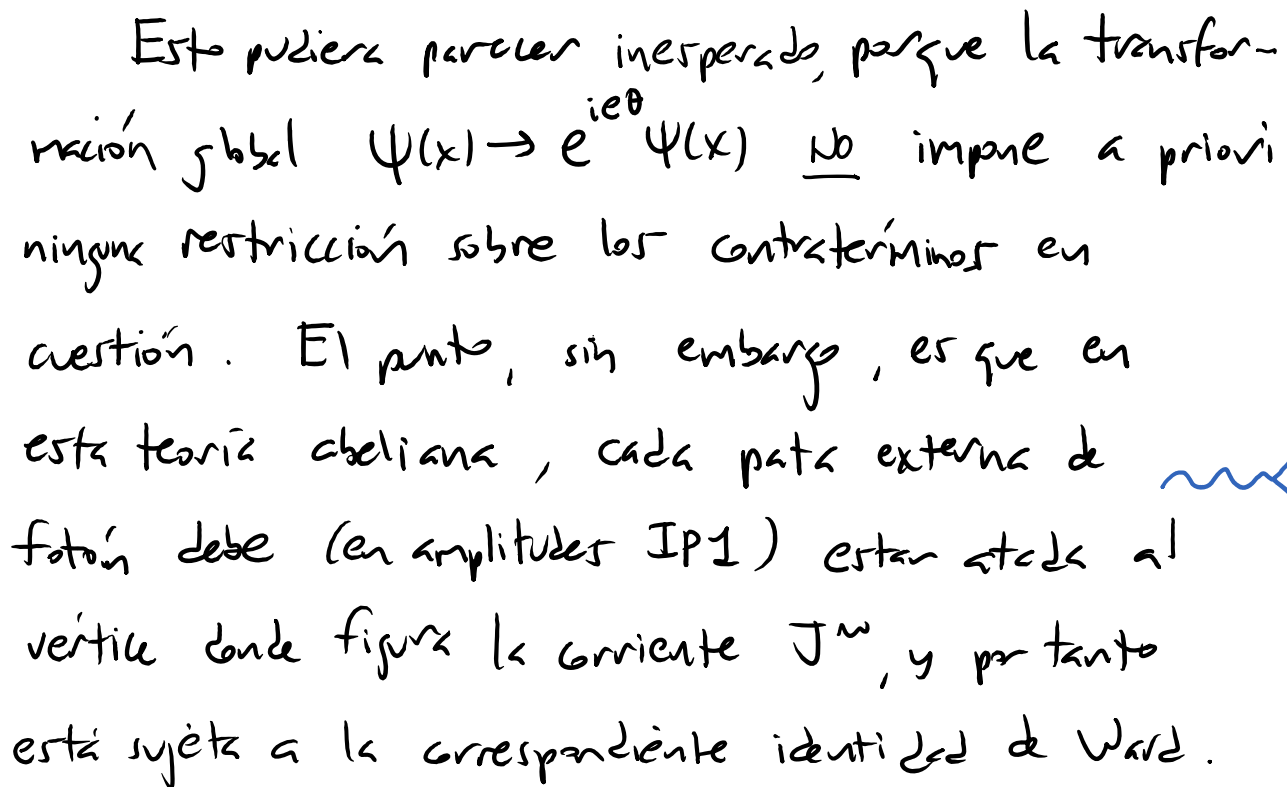 Esto pudiera parecer inesperado, porque la transfor-
mación global ψ(x) → e^{ieθ} ψ(x) NO impone a priori
ninguna restricción sobre los contratérminos en
cuestión. El punto, sin embargo, es que en
esta teoría abeliana, cada pata externa de
fotón debe (en amplitudes IP1) estar atada al
vértice donde figura la corriente J^μ, y por tanto
está sujeta a la correspondiente identidad de Ward.